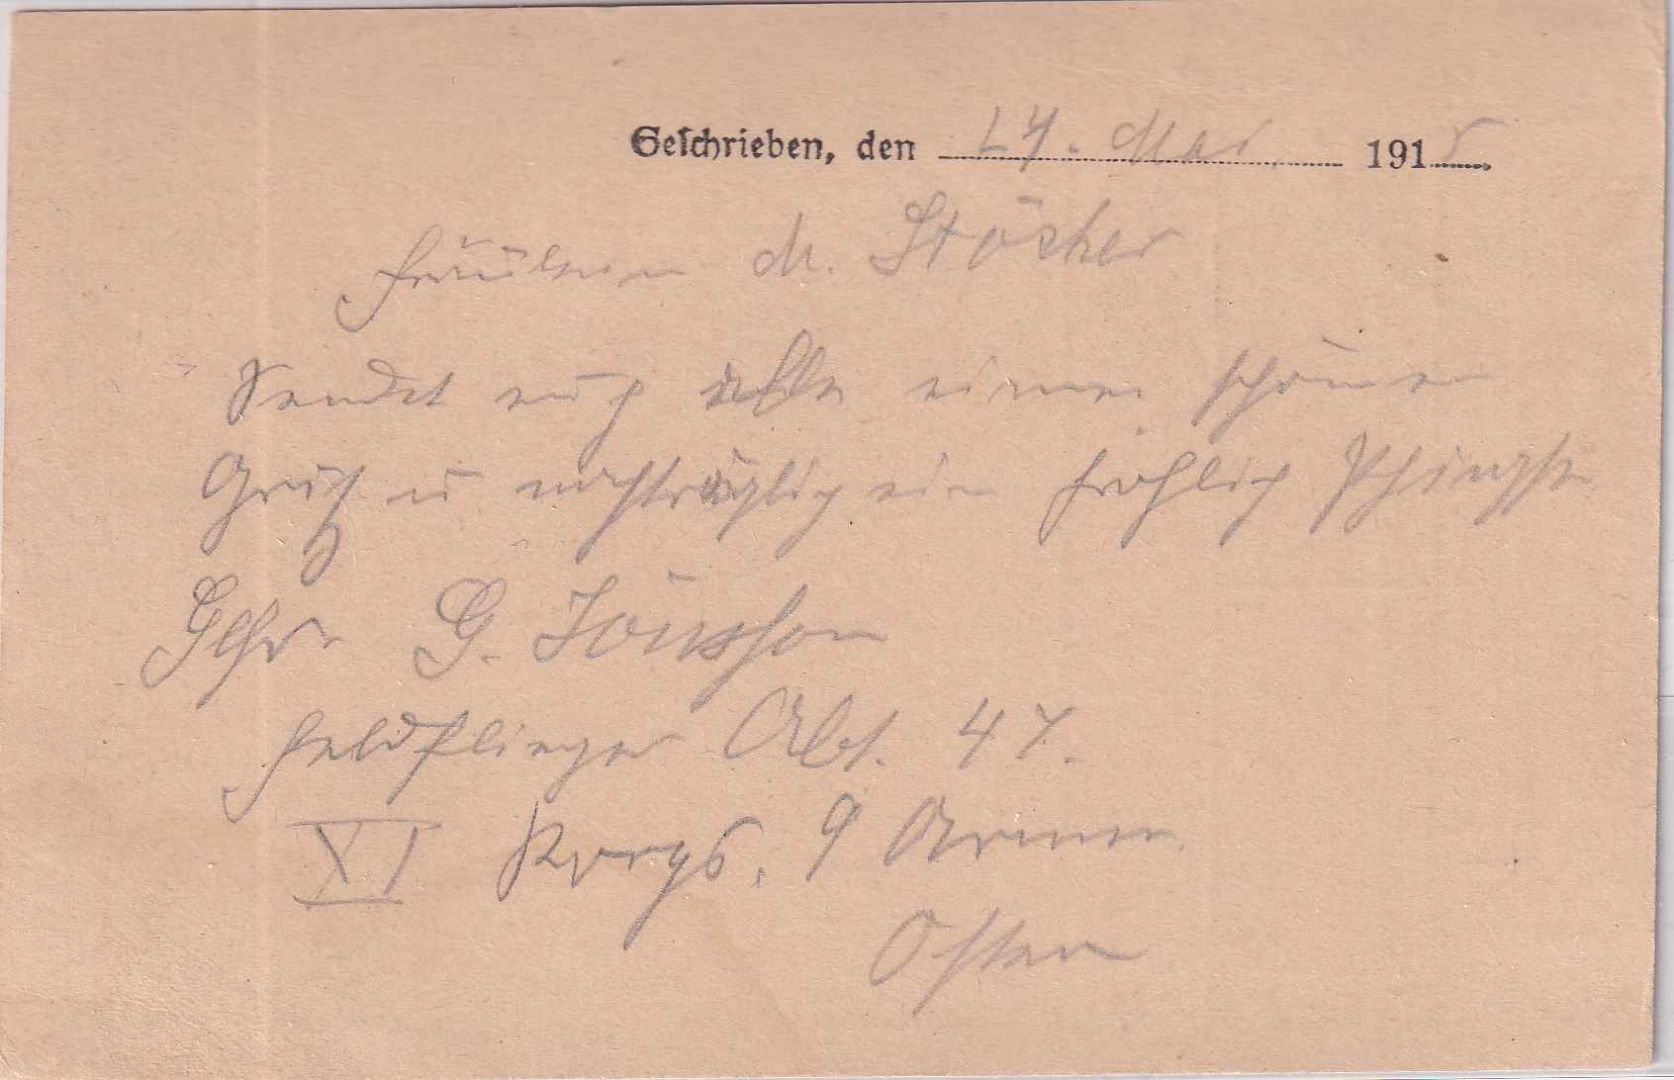 Geschrieben, den 24. Mai 1915
Fräulein M. Stöcker
Sendet euch alle einen schönen
Gruß u nachträglich ein fröhlich Pfingsten
G. Jönsson
Feldflieger Abt. 47.
XI Korps. 9 Armee
Osten